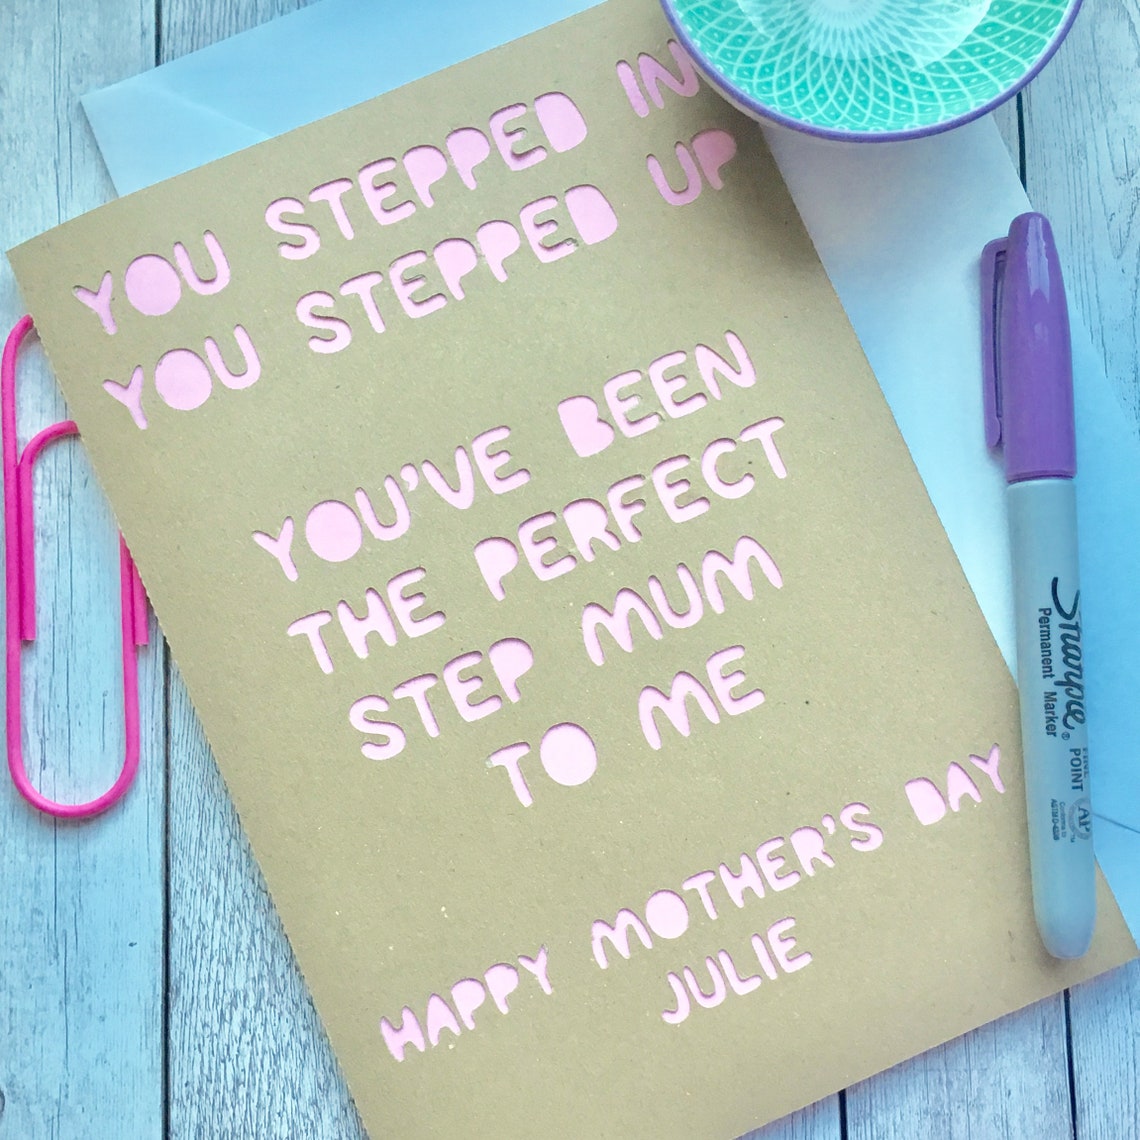 YOU STEPPED IN
YOU STEPPED UP
YOU'VE BEEN
THE PERFECT
STEP MUM
TO ME
HAPPY MOTHER'S DAY
JULIE
Sharpie®
Permanent Marker
FINE POINT
AP